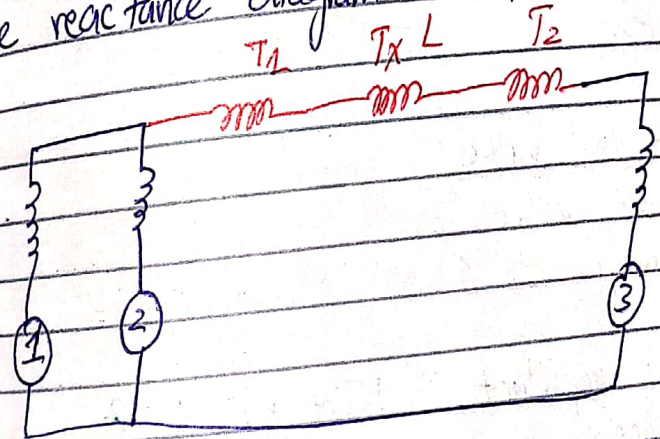 e reactance diagram
T1 Tx L T2
1 2 3